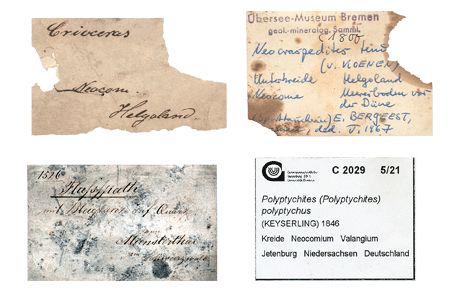 Crioceras
Neocom.
Helgoland.
Übersee-Museum Bremen
geol.-mineralog. Samml.
Neocraspedites
(v. KOENEN)
Unterkreide Helgoland
Neocome Meeresboden vor
der Düne
E. BERGEEST,
ded. V. 1967
1516
Flußspath
mit Bleiglanz auf Quarz
C 2029 5/21
Polyptychites (Polyptychites)
polyptychus
(KEYSERLING) 1846
Kreide Neocomium Valangium
Jetenburg Niedersachsen Deutschland